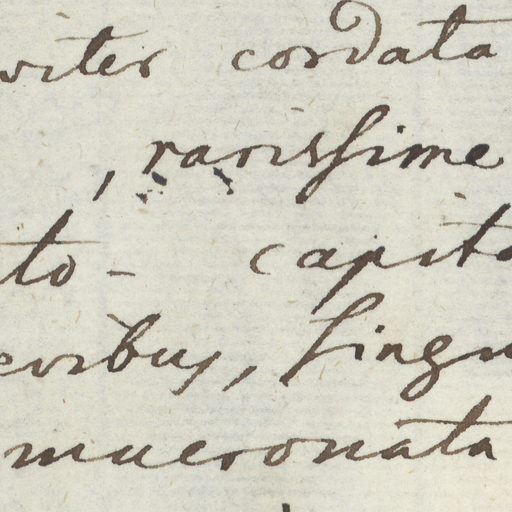 viter cordata
, rarissime
to- capita
oribus, singu
mucronata